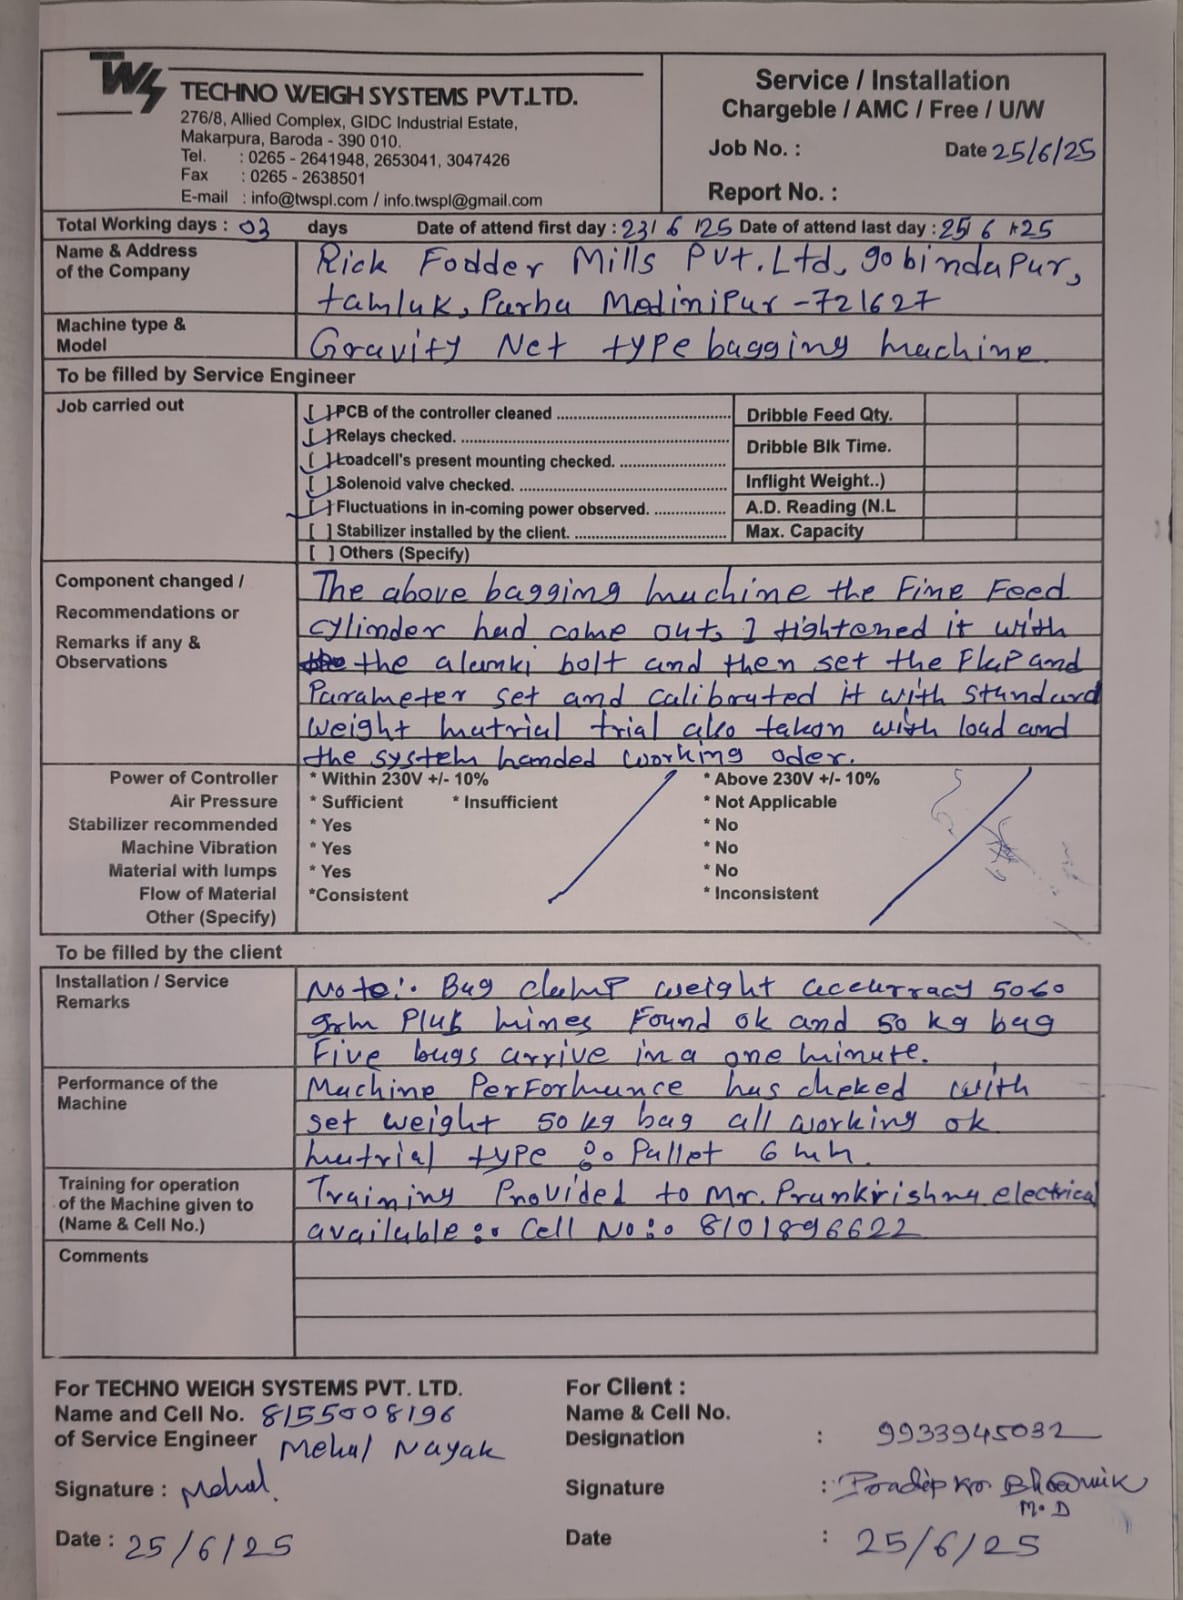 TWS
TECHNO WEIGH SYSTEMS PVT.LTD.
276/8, Allied Complex, GIDC Industrial Estate,
Makarpura, Baroda - 390 010.
Tel. : 0265 - 2641948, 2653041, 3047426
Fax : 0265 - 2638501
E-mail : info@twspl.com / info.twspl@gmail.com
Service / Installation
Chargeble / AMC / Free / U/W
Job No. : Date 25/6/25
Report No. :
Total Working days : 03 days Date of attend first day : 23/6/25 Date of attend last day : 25/6/25
Name & Address
of the Company
Rick Fodder Mills Pvt.Ltd, gobindapur,
tamluk, Purba MediniPur -721627
Machine type &
Model
Gravity Net type bagging machine.
To be filled by Service Engineer
Job carried out
[ ] PCB of the controller cleaned
[ ] Relays checked.
[ ] Loadcell's present mounting checked.
[ ] Solenoid valve checked.
[ ] Fluctuations in in-coming power observed.
[ ] Stabilizer installed by the client.
[ ] Others (Specify)
Dribble Feed Qty.
Dribble Blk Time.
Inflight Weight..)
A.D. Reading (N.L
Max. Capacity
Component changed /
Recommendations or
Remarks if any &
Observations
The above bagging machine the Fine Feed
cylinder had come out, I tightened it with
the alanki bolt and then set the Flap and
Parameter set and calibrated it with Standard
weight matrial trial also taken with load and
the system handed working oder.
Power of Controller * Within 230V +/- 10% * Above 230V +/- 10%
Air Pressure * Sufficient * Insufficient * Not Applicable
Stabilizer recommended * Yes * No
Machine Vibration * Yes * No
Material with lumps * Yes * No
Flow of Material *Consistent * Inconsistent
Other (Specify)
To be filled by the client
Installation / Service
Remarks
Note:. Bag clamp weight accurracy 5060
grm Plus mines Found ok and 50 kg bag
Five bags arrive in a one minute.
Performance of the
Machine
Machine Performance has cheked with
set weight 50 kg bag all working ok
matrial type :. Pallet 6 mm.
Training for operation
of the Machine given to
(Name & Cell No.)
Training Provided to Mr. Prankrishna, electrical
available :. Cell No :. 8101896622
Comments
For TECHNO WEIGH SYSTEMS PVT. LTD.
Name and Cell No. 8155008196
of Service Engineer Mehul Nayak
Signature : Mehul
Date : 25/6/25
For Client :
Name & Cell No.
Designation : 9933945032
Signature : Pradip Kr. Bhowmik
M.D
Date : 25/6/25